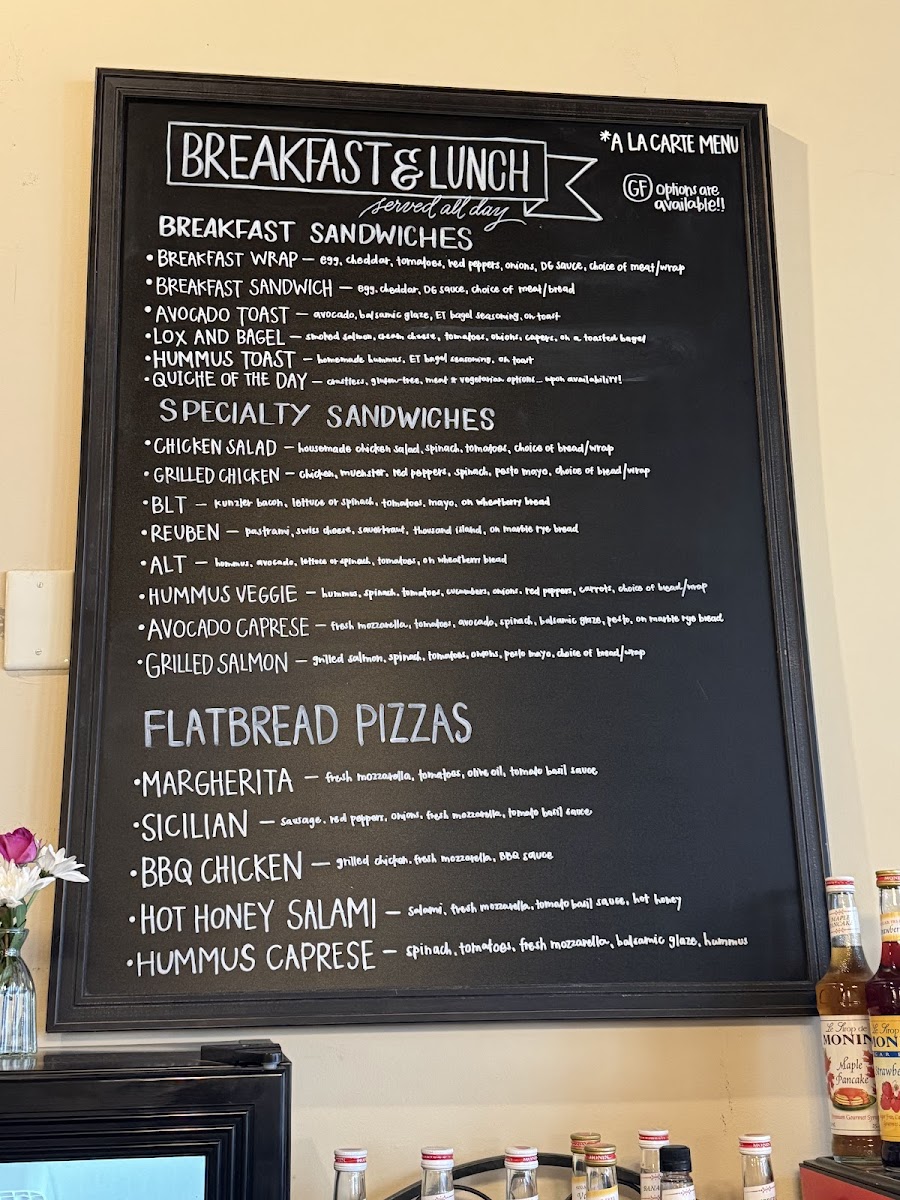 BREAKFAST & LUNCH
served all day
*A LA CARTE MENU
GF options are
available!!
BREAKFAST SANDWICHES
• BREAKFAST WRAP – egg, cheddar, tomatoes, red peppers, onions, DG sauce, choice of meat/wrap
• BREAKFAST SANDWICH – egg, cheddar, DG sauce, choice of meat/bread
• AVOCADO TOAST – avocado, balsamic glaze, ET bagel seasoning, on toast
• LOX AND BAGEL – smoked salmon, cream cheese, tomatoes, onions, capers, on a toasted bagel
• HUMMUS TOAST – homemade hummus, ET bagel seasoning, on toast
• QUICHE OF THE DAY – crustless, gluten-free, meat & vegetarian options... upon availability!
SPECIALTY SANDWICHES
• CHICKEN SALAD – housemade chicken salad, spinach, tomatoes, choice of bread/wrap
• GRILLED CHICKEN – chicken, muenster, red peppers, spinach, pesto mayo, choice of bread/wrap
• BLT – kunzler bacon, lettuce or spinach, tomatoes, mayo, on wheatberry bread
• REUBEN – pastrami, swiss cheese, sauerkraut, thousand island, on marble rye bread
• ALT – hummus, avocado, lettuce or spinach, tomatoes, on wheatberry bread
• HUMMUS VEGGIE – hummus, spinach, tomatoes, cucumbers, onions, red peppers, carrots, choice of bread/wrap
• AVOCADO CAPRESE – fresh mozzarella, tomatoes, avocado, spinach, balsamic glaze, pesto, on marble rye bread
• GRILLED SALMON – grilled salmon, spinach, tomatoes, onions, pesto mayo, choice of bread/wrap
FLATBREAD PIZZAS
• MARGHERITA – fresh mozzarella, tomatoes, olive oil, tomato basil sauce
• SICILIAN – sausage, red peppers, onions, fresh mozzarella, tomato basil sauce
• BBQ CHICKEN – grilled chicken, fresh mozzarella, BBQ sauce
• HOT HONEY SALAMI – salami, fresh mozzarella, tomato basil sauce, hot honey
• HUMMUS CAPRESE – spinach, tomatoes, fresh mozzarella, balsamic glaze, hummus
MAPLE
PANCAKE
Le Sirop de
MONIN
Maple
Pancake